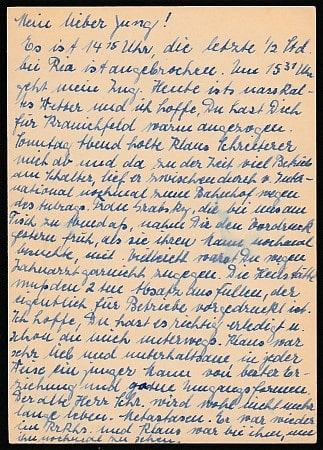 Mein lieber Jung!
Es ist 14¹⁵ Uhr, die letzte ½ Std.
bei Ria ist angebrochen. Um 15³¹ Uhr
geht mein Zug. Heute ist nasskal-
tes Wetter und ich hoffe, Du hast Dich
für Kranichfeld warm angezogen.
Sonntag Abend holte Klaus
mich ab und da zu der Zeit viel Betrieb
am Schalter, lief er zwischendurch v. Inter-
national nochmal zum Bahnhof wegen
des Frau die bei uns am
Tisch zu Abend aß, nahm Dir den Vordruck
gestern früh, als sie ihren Mann nochmal
besuchte, mit. Vielleicht warst Du wegen
Zahnarzt garnicht zugegen. Die
mußten 2 ten Absatz ausfüllen, der
eigentlich für Betriebe vorgedruckt ist.
Ich hoffe, Du hast es richtig erledigt u.
schon bin ich unterwegs. Klaus war
sehr lieb und unterhaltsam in jeder
Weise ein junger Mann von bester Er-
ziehung und Umgangsformen.
Der alte Herr Schr. wird wohl nicht mehr
lange leben. Metastasen. Er war wieder
im Krkhs. und Klaus war bei ihm, um
ihn nochmal zu sehen.